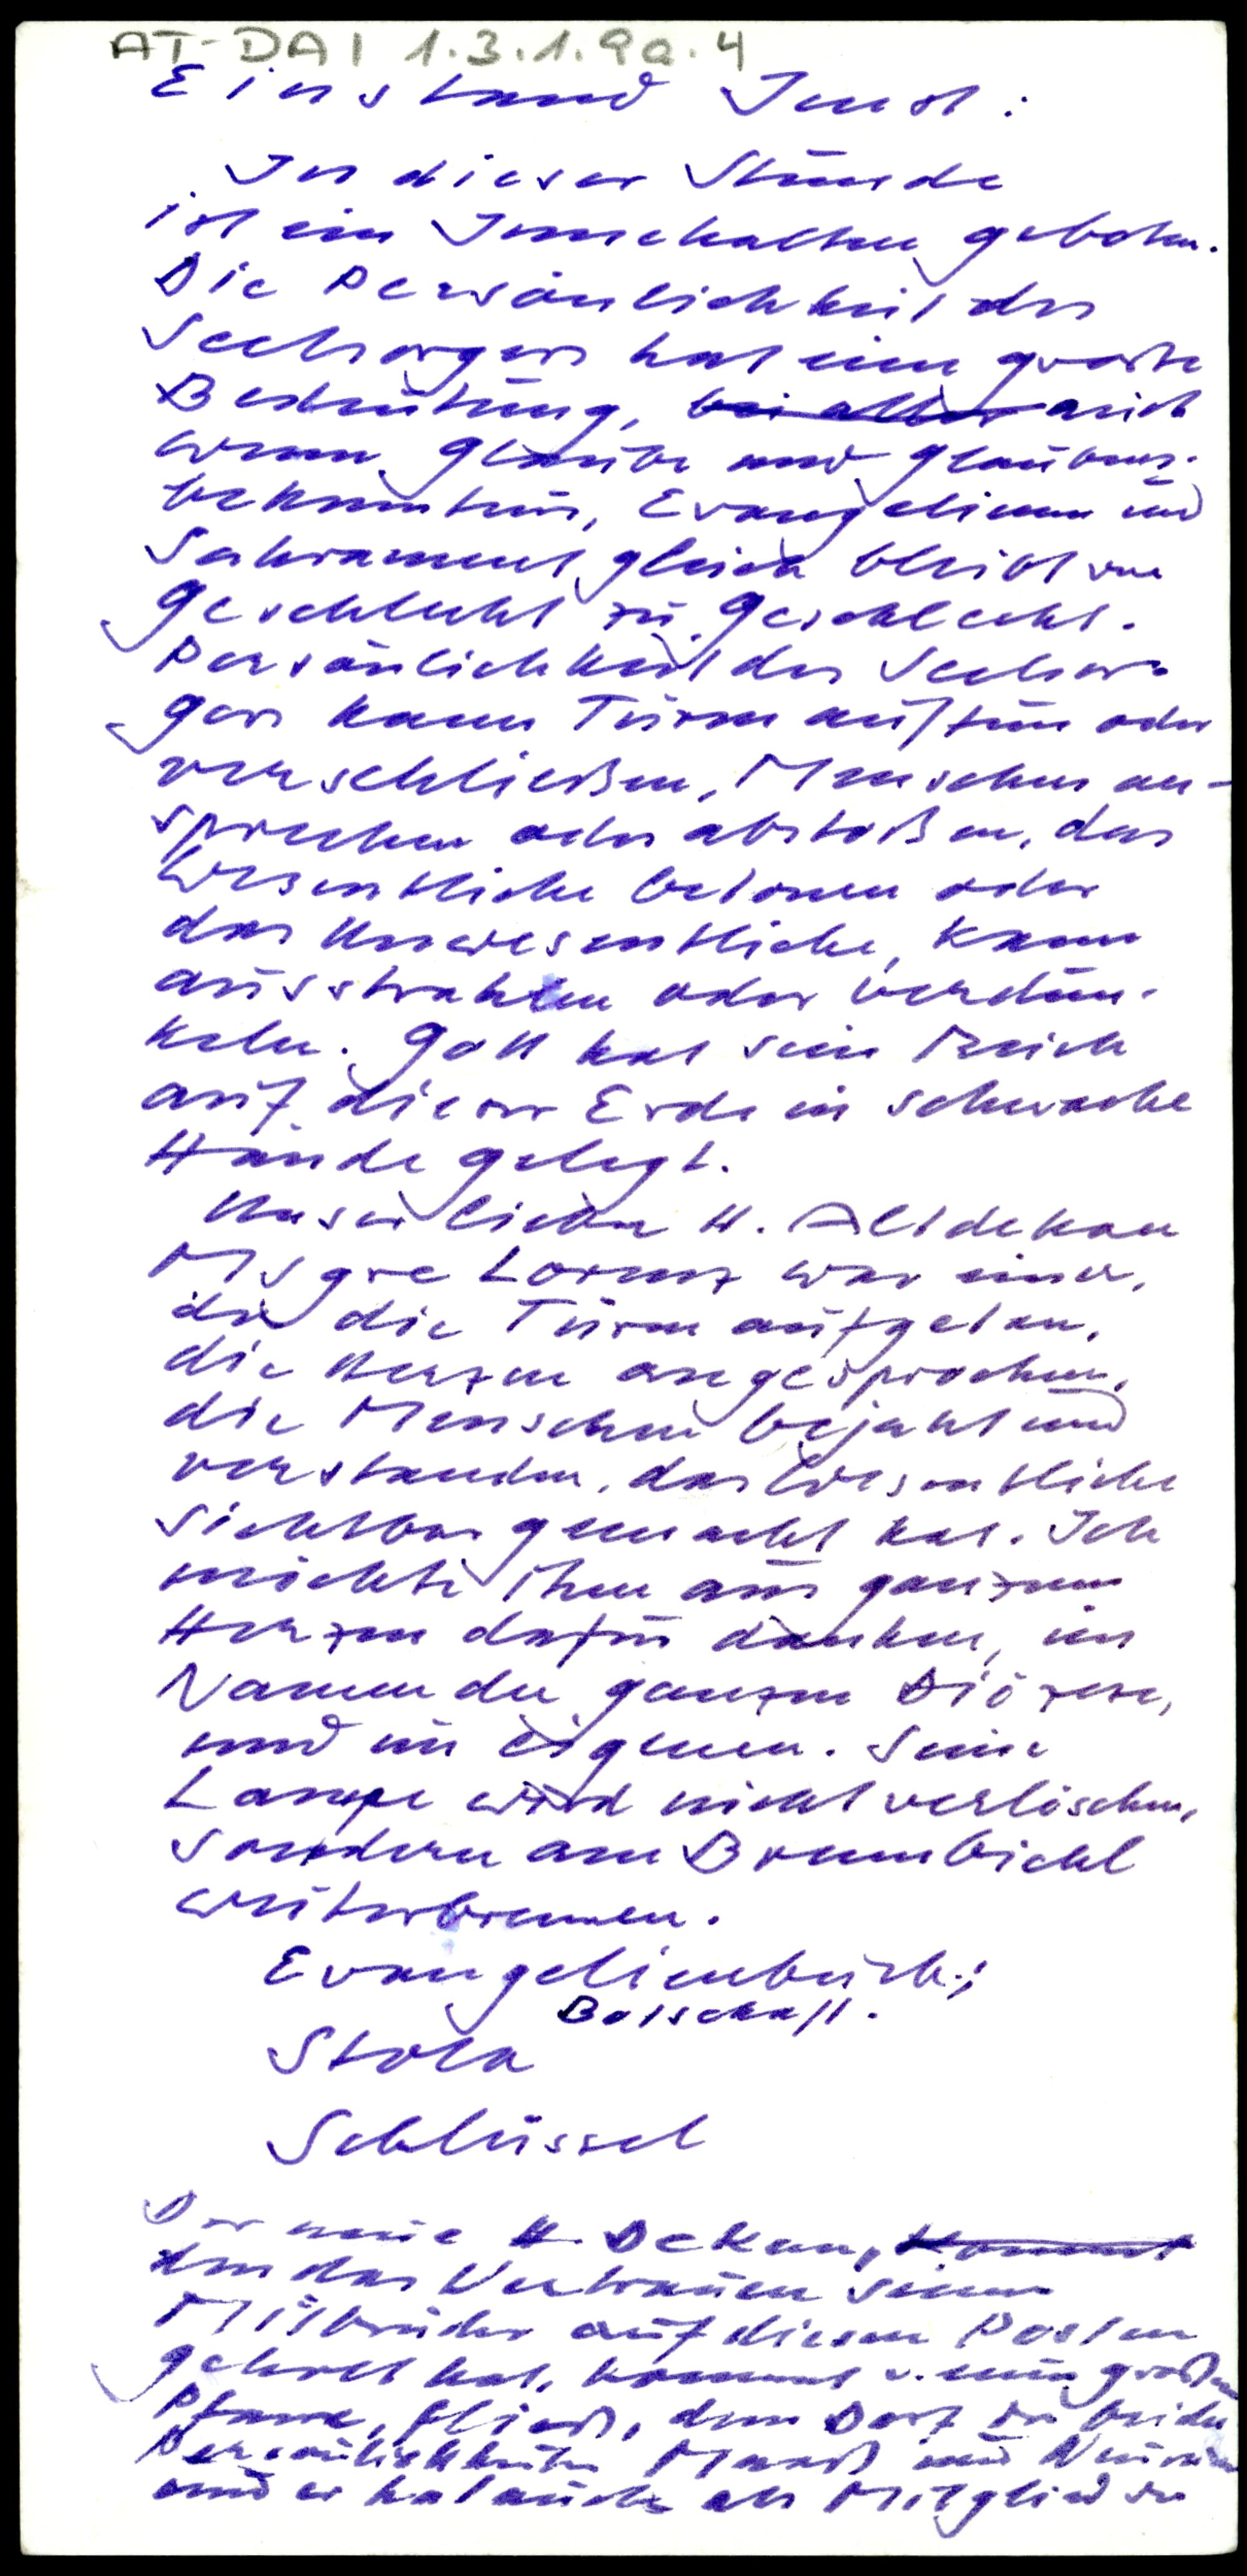 AT-DAI 1.3.1.9a.4
Einstand Imst:
In dieser Stunde
ist ein Innehalten geboten.
Die Persönlichkeit des
Seelsorgers hat eine große
Bedeutung, bei aller auch
wenn Glaube und Glaubens-
bekenntnis, Evangelium und
Sakrament gleich bleibt von
Geschlecht zu Geschlecht.
Persönlichkeit des Seelsor-
gers kann Türen auftun oder
verschließen, Menschen an-
sprechen oder abstoßen, das
Wesentliche betonen oder
das Unwesentliche, kann
ausstrahlen oder verdun-
keln. Gott hat sein Reich
auf dieser Erde in schwache
Hände gelegt.
Unser lieber H. Altdekan
Msgre Lorenz war einer,
der die Türen aufgetan,
die Herzen angesprochen,
die Menschen bejaht und
verstanden, das Wesentliche
sichtbar gemacht hat. Ich
möchte ihm aus ganzem
Herzen dafür danken, im
Namen der ganzen Diözese,
und im eigenen. Seine
Lampe wird nicht verlöschen,
sondern am Brennbichl
weiterbrennen.
Evangelienbuch;
Botschaft.
Stola
Schlüssel
Der neue H. Dekan, kommt
den das Vertrauen seiner
Mitbrüder auf diesen Posten
geholt hat, kommt v. einer großen
Pfarre, Fließ, dem Dorf der beiden
Persönlichkeiten Maaß und
und er hat auch als Mitglied des